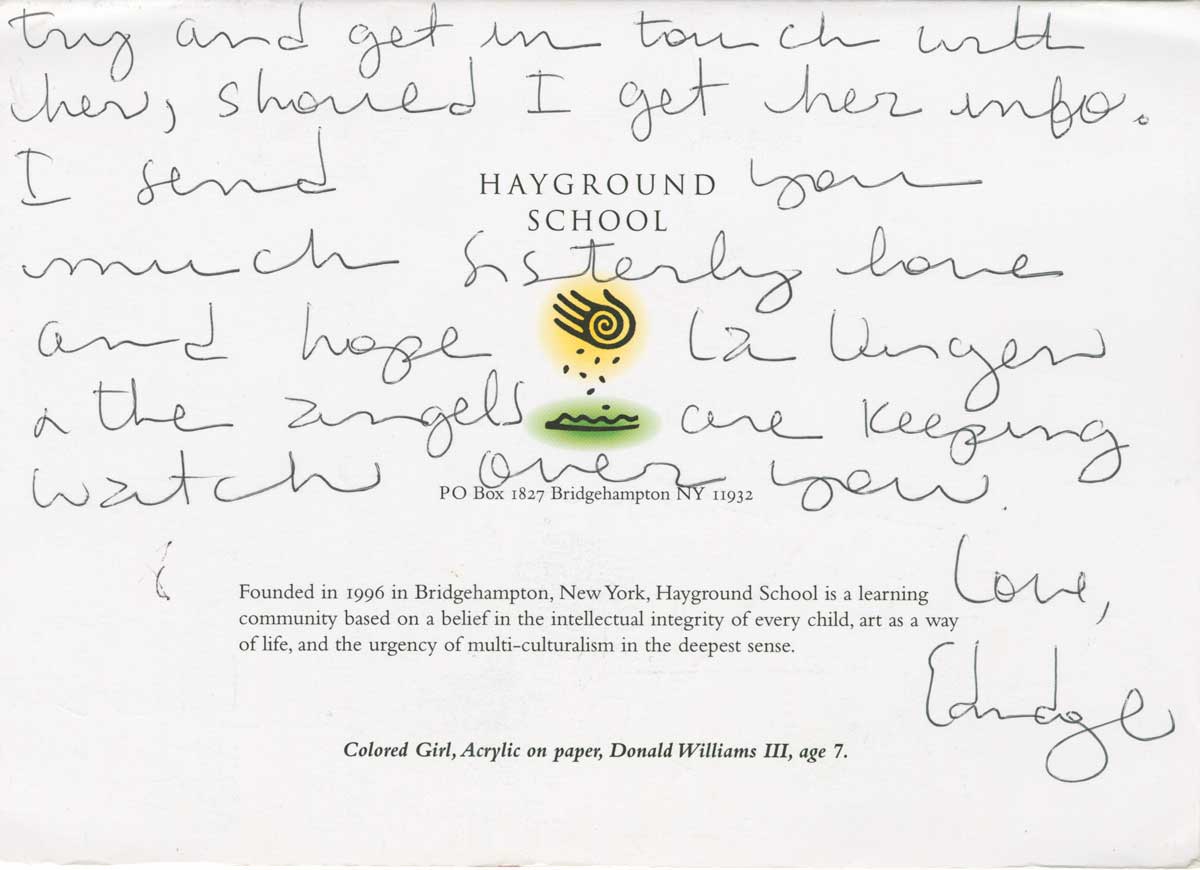 try and get in touch with
her, should I get her info.
I send you
HAYGROUND
SCHOOL
much sisterly love
and hope La Virgen
& the angels are keeping
watch over you.
PO Box 1827 Bridgehampton NY 11932
Love,
Founded in 1996 in Bridgehampton, New York, Hayground School is a learning
community based on a belief in the intellectual integrity of every child, art as a way
of life, and the urgency of multi-culturalism in the deepest sense.
Edwidge
Colored Girl, Acrylic on paper, Donald Williams III, age 7.